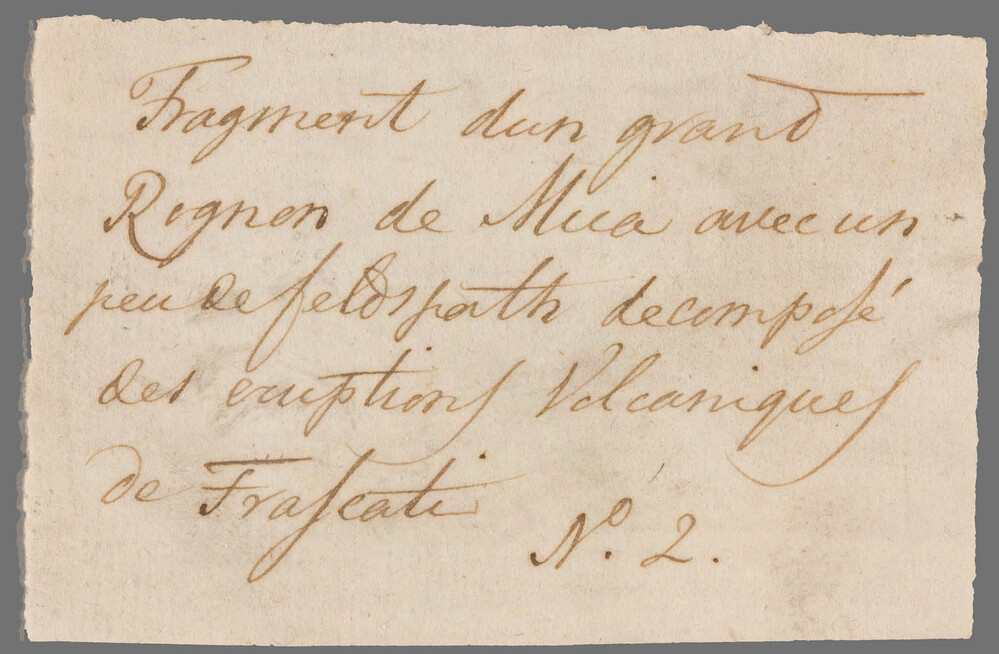 Fragment dun grand
Rognon de Mica avec un
peu de feldspath decomposé
des eruptions Volcaniques
de Frascati
N.º 2.